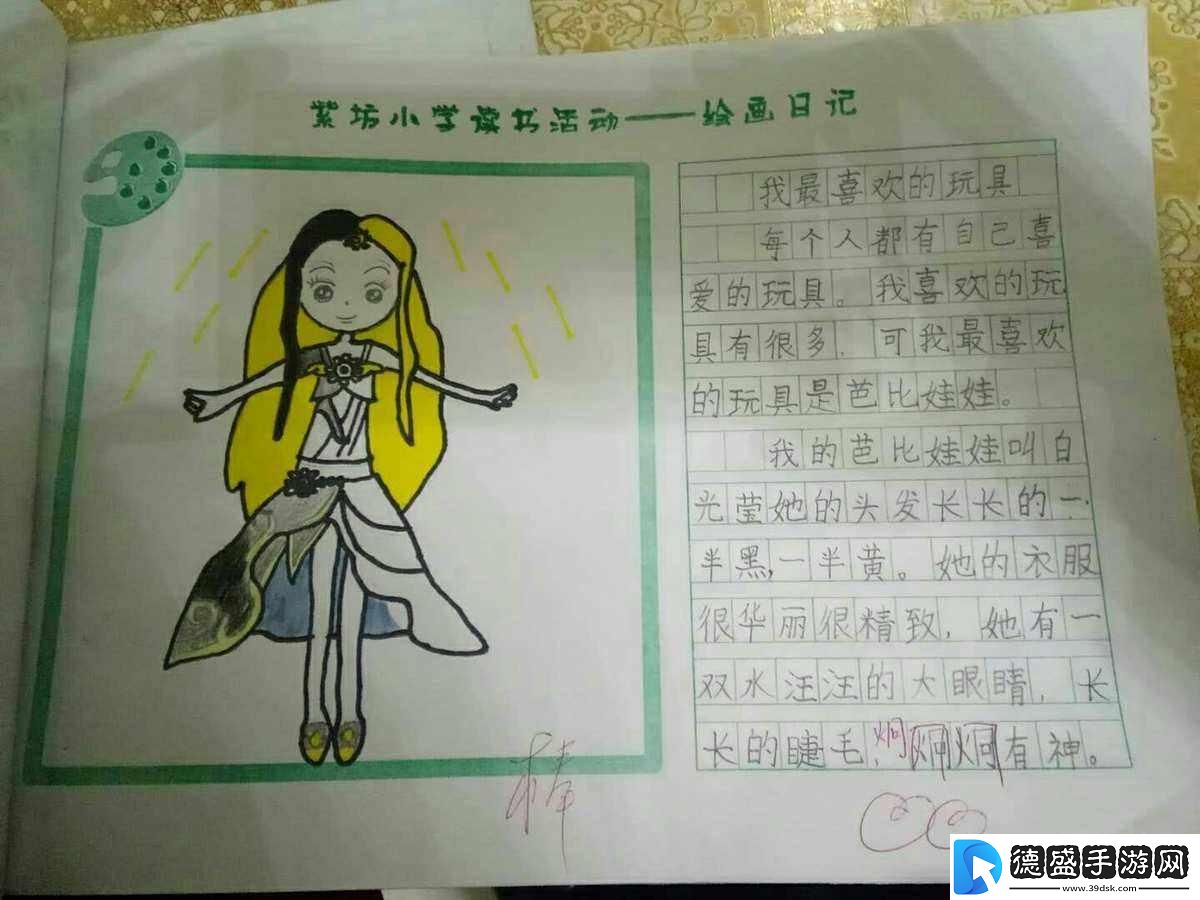 紫坊小学读书活动——绘画日记
我最喜欢的玩具
每个人都有自己喜
爱的玩具。我喜欢的玩
具有很多，可我最喜欢
的玩具是芭比娃娃。
我的芭比娃娃叫白
光莹她的头发长长的一
半黑，一半黄。她的衣服
很华丽很精致，她有一
双水汪汪的大眼睛，长
长的睫毛，炯炯有神。
炯
棒
德盛手游网
www.39dsk.com